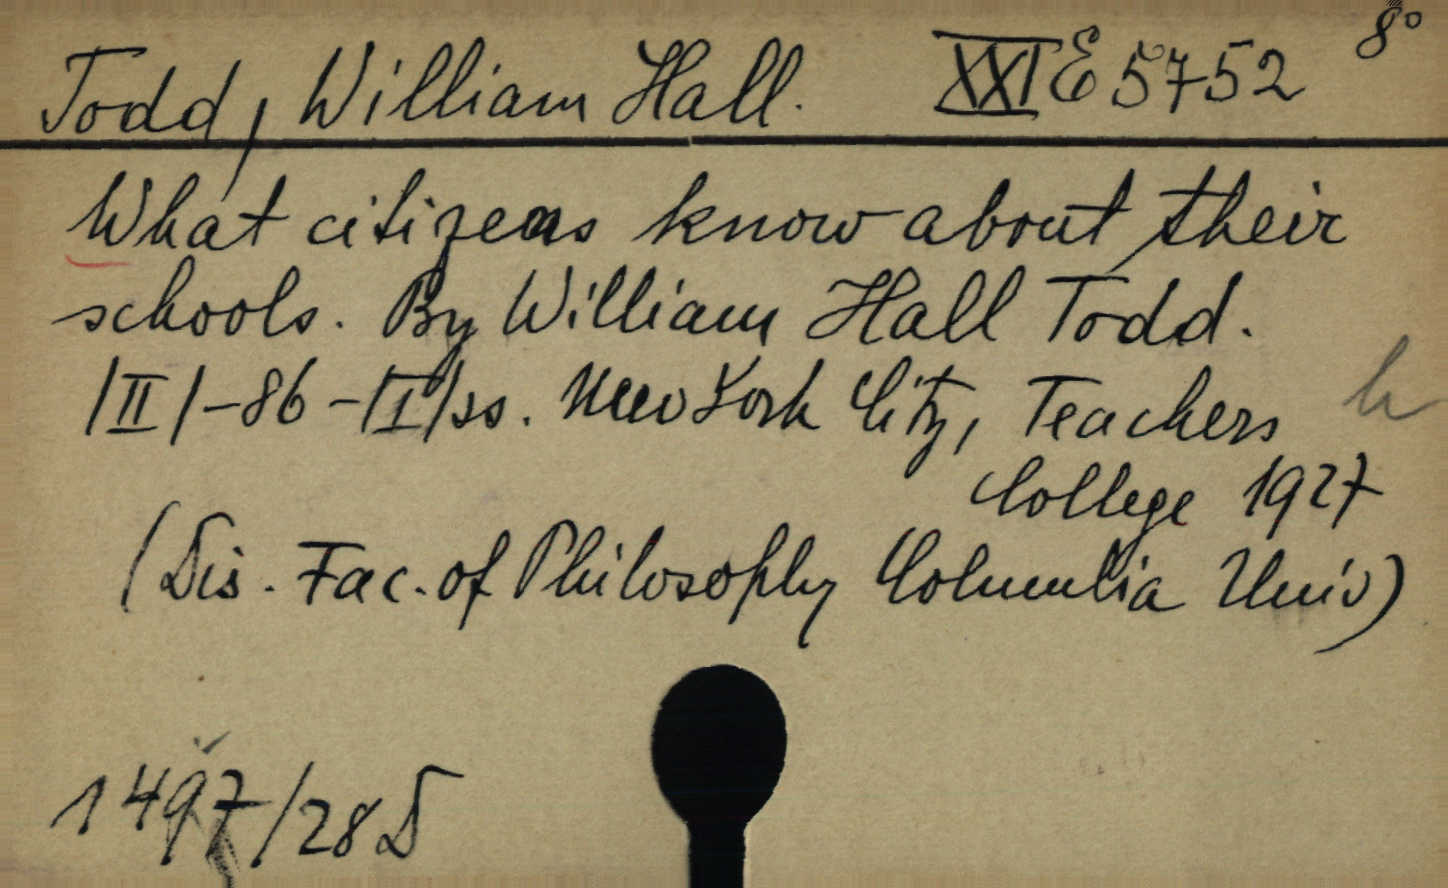 Todd, William Hall. XXI E 5752 8°
What citizens know about their
schools. By William Hall Todd.
/II/-86-/I/ss. New York City, Teachers h
College 1927
(Dis. Fac. of Philosophy Columbia Univ)
1497/28 D